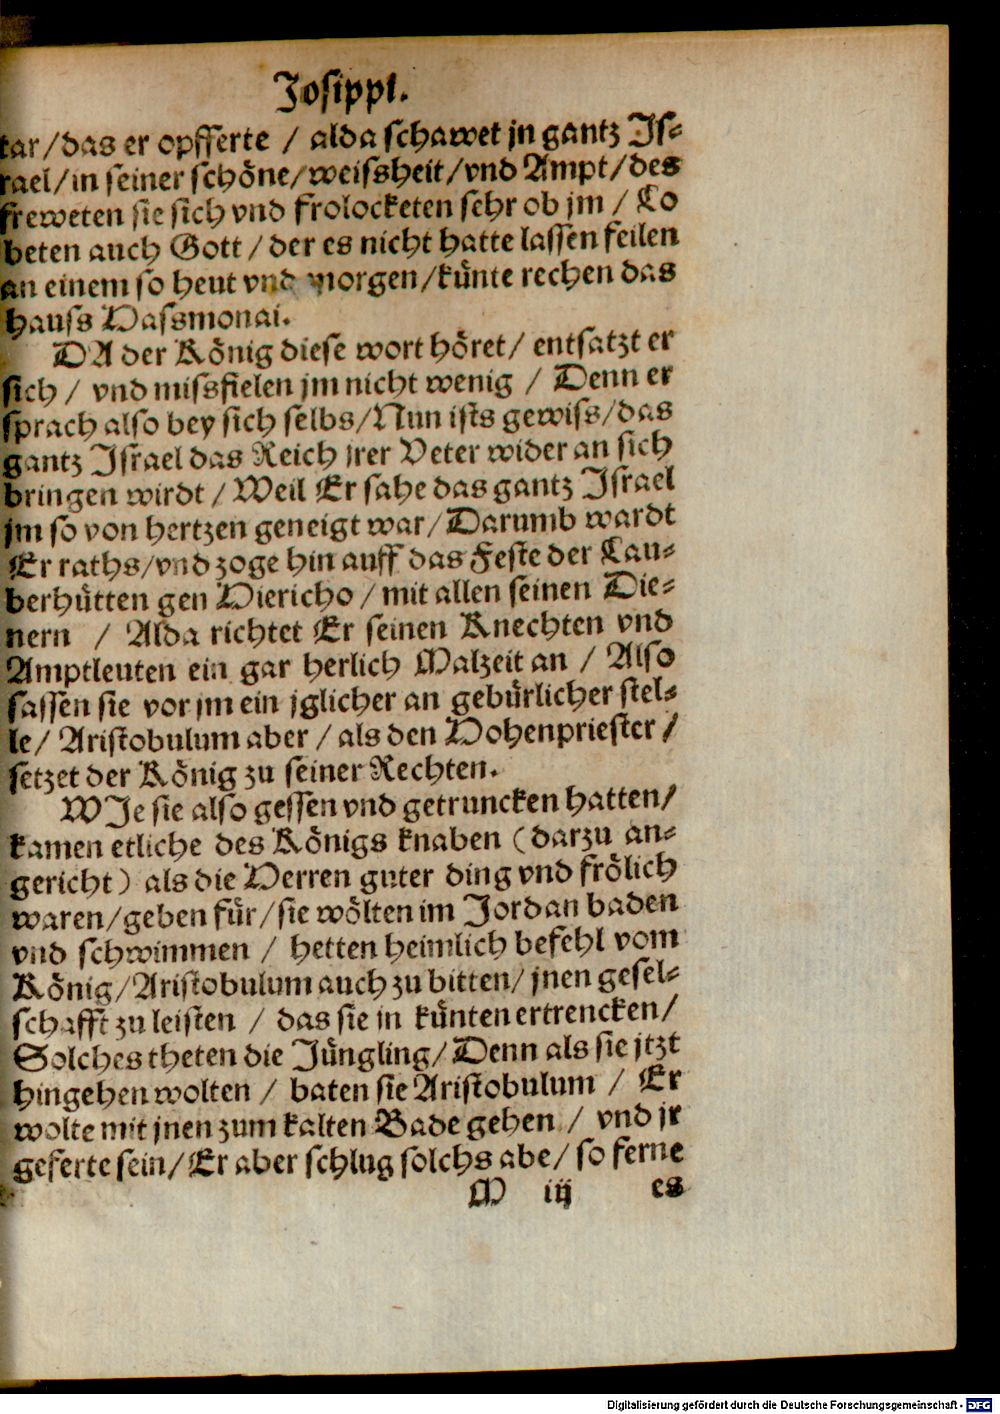 Josippi.
tar/das er opfferte / alda schawet jn gantz Js⸗
rael/in seiner schöne/weissheit/vnd Ampt/des
freweten sie sich vnd frolocketen sehr ob jm / Lo
beten auch Gott / der es nicht hatte lassen feilen
an einem so heut vnd morgen/künte rechen das
hauss Hassmonai.
DA der König diese wort höret/ entsatzt er
sich / vnd missfielen jm nicht wenig / Denn er
sprach also bey sich selbs/Nun ists gewiss/das
gantz Jsrael das Reich jrer Veter wider an sich
bringen wirdt / Weil Er sahe das gantz Jsrael
jm so von hertzen geneigt war/Darumb wardt
Er raths/vnd zoge hin auff das Feste der Lau⸗
berhütten gen Hiericho / mit allen seinen Die⸗
nern / Alda richtet Er seinen Knechten vnd
Amptleuten ein gar herlich Malzeit an / Also
sassen sie vor jm ein jglicher an gebürlicher stel⸗
le/ Aristobulum aber / als den Hohenpriester /
setzet der König zu seiner Rechten.
WJe sie also gessen vnd getruncken hatten/
kamen etliche des Königs knaben (darzu an⸗
gericht) als die Herren guter ding vnd frölich
waren/geben für/sie wölten im Jordan baden
vnd schwimmen / hetten heimlich befehl vom
König/Aristobulum auch zu bitten/ jnen gesel⸗
schafft zu leisten / das sie jn künten ertrencken/
Solches theten die Jüngling/Denn als sie jtzt
hingehen wolten / baten sie Aristobulum / Er
wolte mit jnen zum kalten Bade gehen / vnd jr
geferte sein/Er aber schlug solchs abe/ so ferne
M iij es
Digitalisierung gefördert durch die Deutsche Forschungsgemeinschaft - DFG